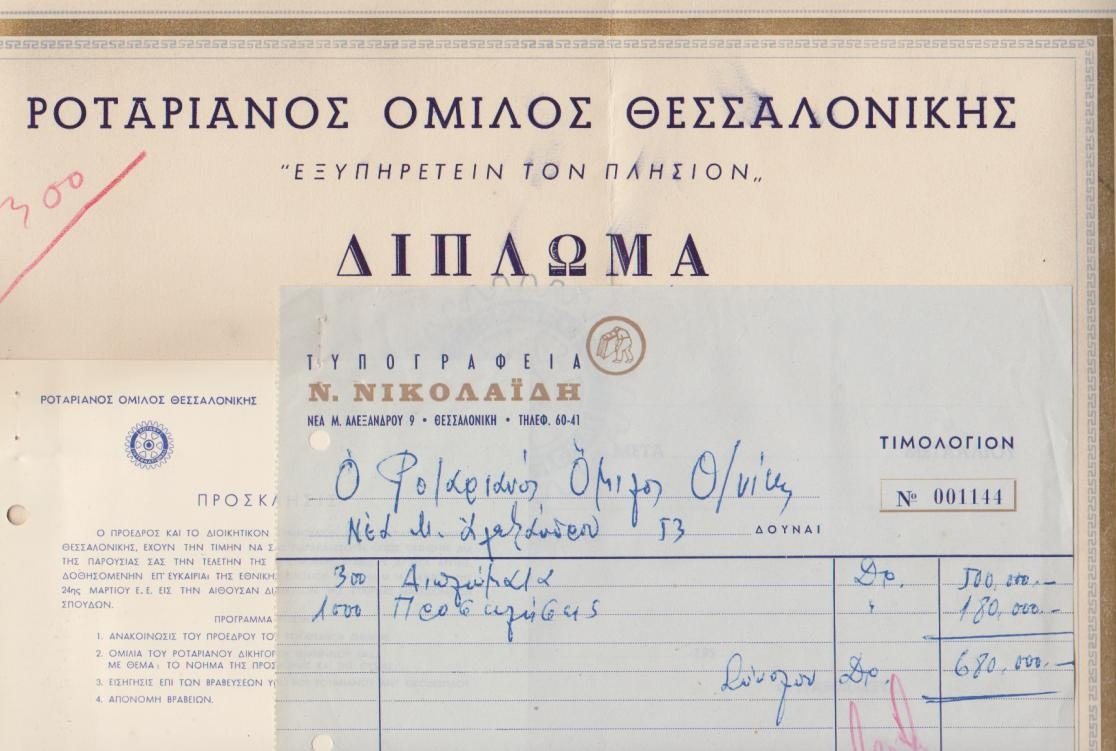 ΡΟΤΑΡΙΑΝΟΣ ΟΜΙΛΟΣ ΘΕΣΣΑΛΟΝΙΚΗΣ
"ΕΞΥΠΗΡΕΤΕΙΝ ΤΟΝ ΠΛΗΣΙΟΝ„
300
ΔΙΠΛΩΜΑ
ΡΟΤΑΡΙΑΝΟΣ ΟΜΙΛΟΣ ΘΕΣΣΑΛΟΝΙΚΗΣ
ΠΡΟΣΚΛΗΣΙΣ
Ο ΠΡΟΕΔΡΟΣ ΚΑΙ ΤΟ ΔΙΟΙΚΗΤΙΚΟΝ
ΘΕΣΣΑΛΟΝΙΚΗΣ, ΕΧΟΥΝ ΤΗΝ ΤΙΜΗΝ ΝΑ Σ
ΤΗΣ ΠΑΡΟΥΣΙΑΣ ΣΑΣ ΤΗΝ ΤΕΛΕΤΗΝ ΤΗΣ
ΔΟΘΗΣΟΜΕΝΗΝ ΕΠ' ΕΥΚΑΙΡΙΑΙ ΤΗΣ ΕΘΝΙΚΗΣ
24ης ΜΑΡΤΙΟΥ Ε.Ε. ΕΙΣ ΤΗΝ ΑΙΘΟΥΣΑΝ ΔΙ
ΣΠΟΥΔΩΝ.
ΠΡΟΓΡΑΜΜΑ
1. ΑΝΑΚΟΙΝΩΣΙΣ ΤΟΥ ΠΡΟΕΔΡΟΥ ΤΟΥ
2. ΟΜΙΛΙΑ ΤΟΥ ΡΟΤΑΡΙΑΝΟΥ ΔΙΚΗΓΟΡ
ΜΕ ΘΕΜΑ: ΤΟ ΝΟΗΜΑ ΤΗΣ ΠΡΟΣ
3. ΕΙΣΗΓΗΣΙΣ ΕΠΙ ΤΩΝ ΒΡΑΒΕΥΣΕΩΝ Υ
4. ΑΠΟΝΟΜΗ ΒΡΑΒΕΙΩΝ.
ΤΥΠΟΓΡΑΦΕΙΑ
Ν. ΝΙΚΟΛΑΪΔΗ
ΝΕΑ Μ. ΑΛΕΞΑΝΔΡΟΥ 9 • ΘΕΣΣΑΛΟΝΙΚΗ • ΤΗΛΕΦ. 60-41
ΤΙΜΟΛΟΓΙΟΝ
Nº 001144
Ὁ Ροταριανός Ὅμιλος Θ/νίκης
Νέα Μ. Ἀλεξάνδρου 53 ΔΟΥΝΑΙ
300 Διπλώματα Δρ. 500,000.-
1000 Προσκλήσεις " 180,000.-
Σύνολον Δρ. 680,000.-